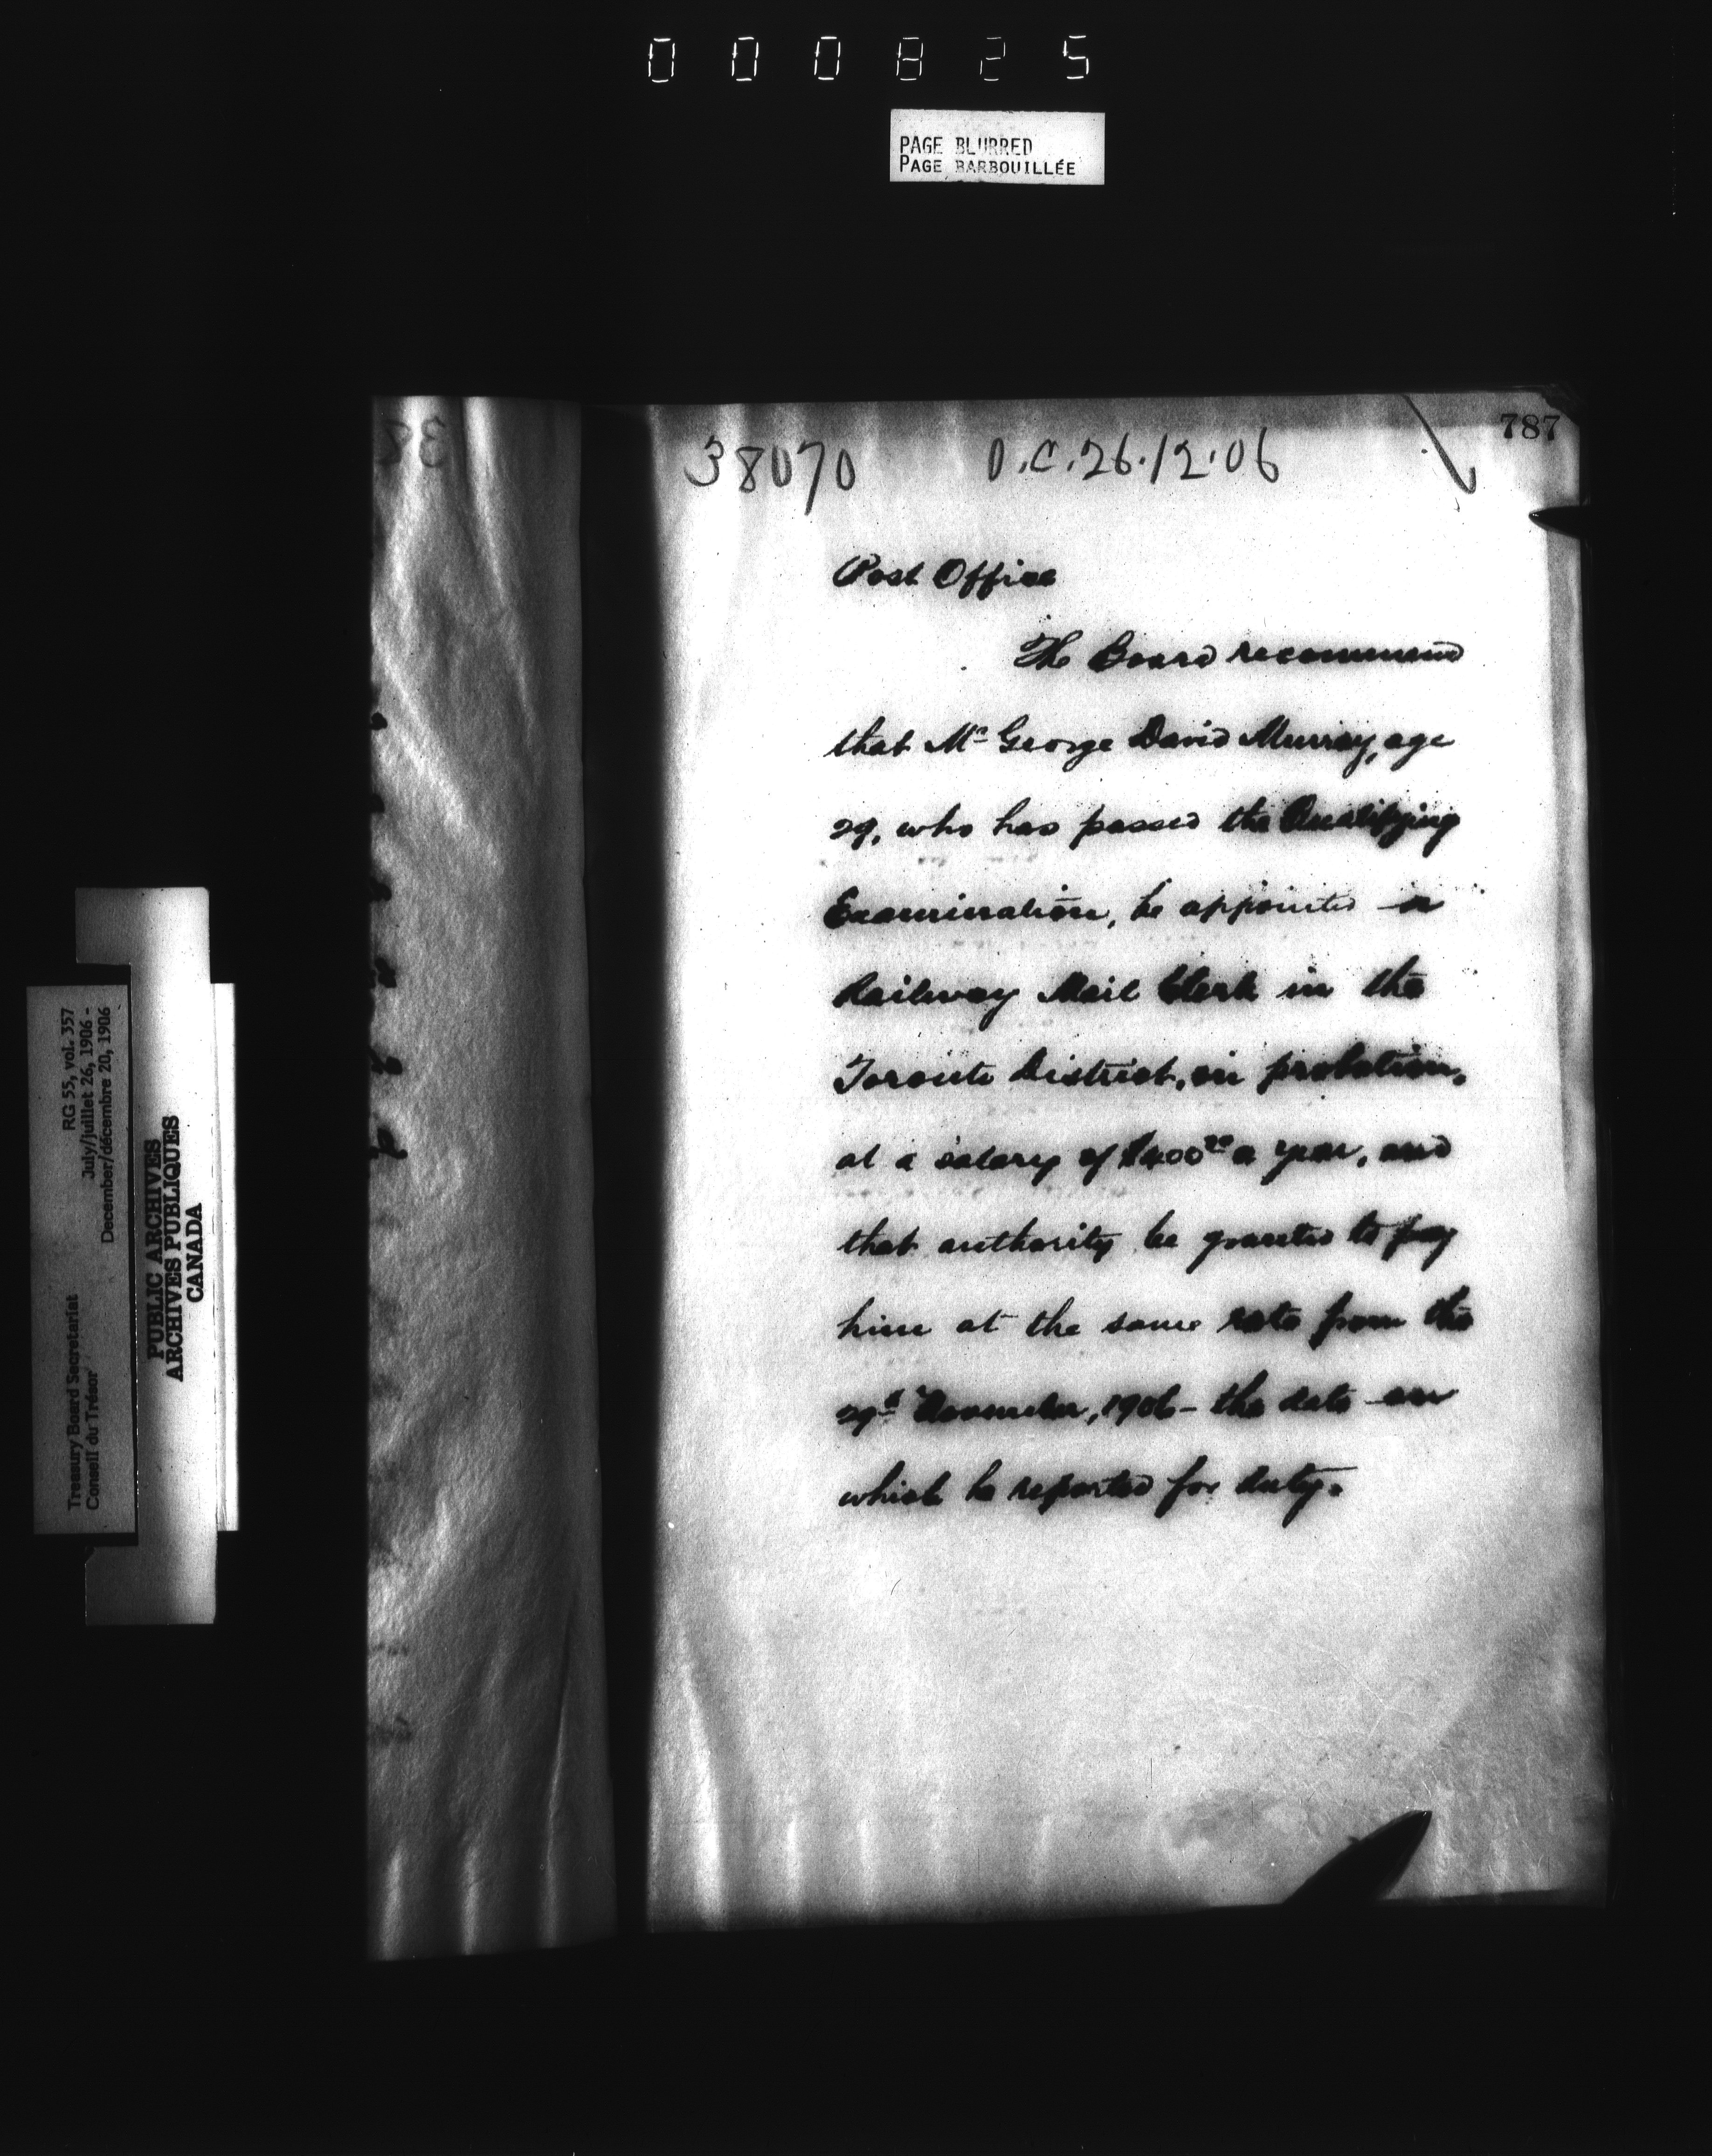 000825
PAGE BLURRED
PAGE BARBOUILLÉE
787
38070 O.C. 26.12.06
Post Office
The Board recommend
that Mr George David Murray, age
29, who has passed the Qualifying
Examination, be appointed a
Railway Mail Clerk in the
Toronto District, on probation,
at a salary of $400 00 a year, and
that authority be granted to pay
him at the same rate from the
November, 1906 - the date on
which he reported for duty.
Treasury Board Secretariat RG 55, vol. 357
Conseil du Trésor July/juillet 26, 1906 -
December/décembre 20, 1906
PUBLIC ARCHIVES
ARCHIVES PUBLIQUES
CANADA